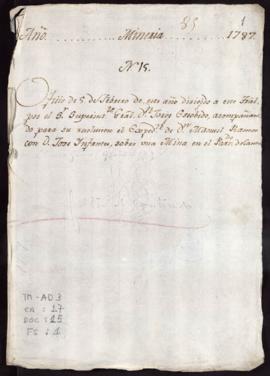 85 1
Año. Mineria 1787
N. 15.
Oficio de 5 de Febrero de este año dirigido a este Tral.
por el Sr. Superint.te Gral. Dn. Jorge Escobedo, acompañan
do para su el Exped.te de Dn. Manuel Ramos
con D. Jose Infantes, sobre una Mina en el
TM-AD3
CA : 17
DOC : 15
FS : 1